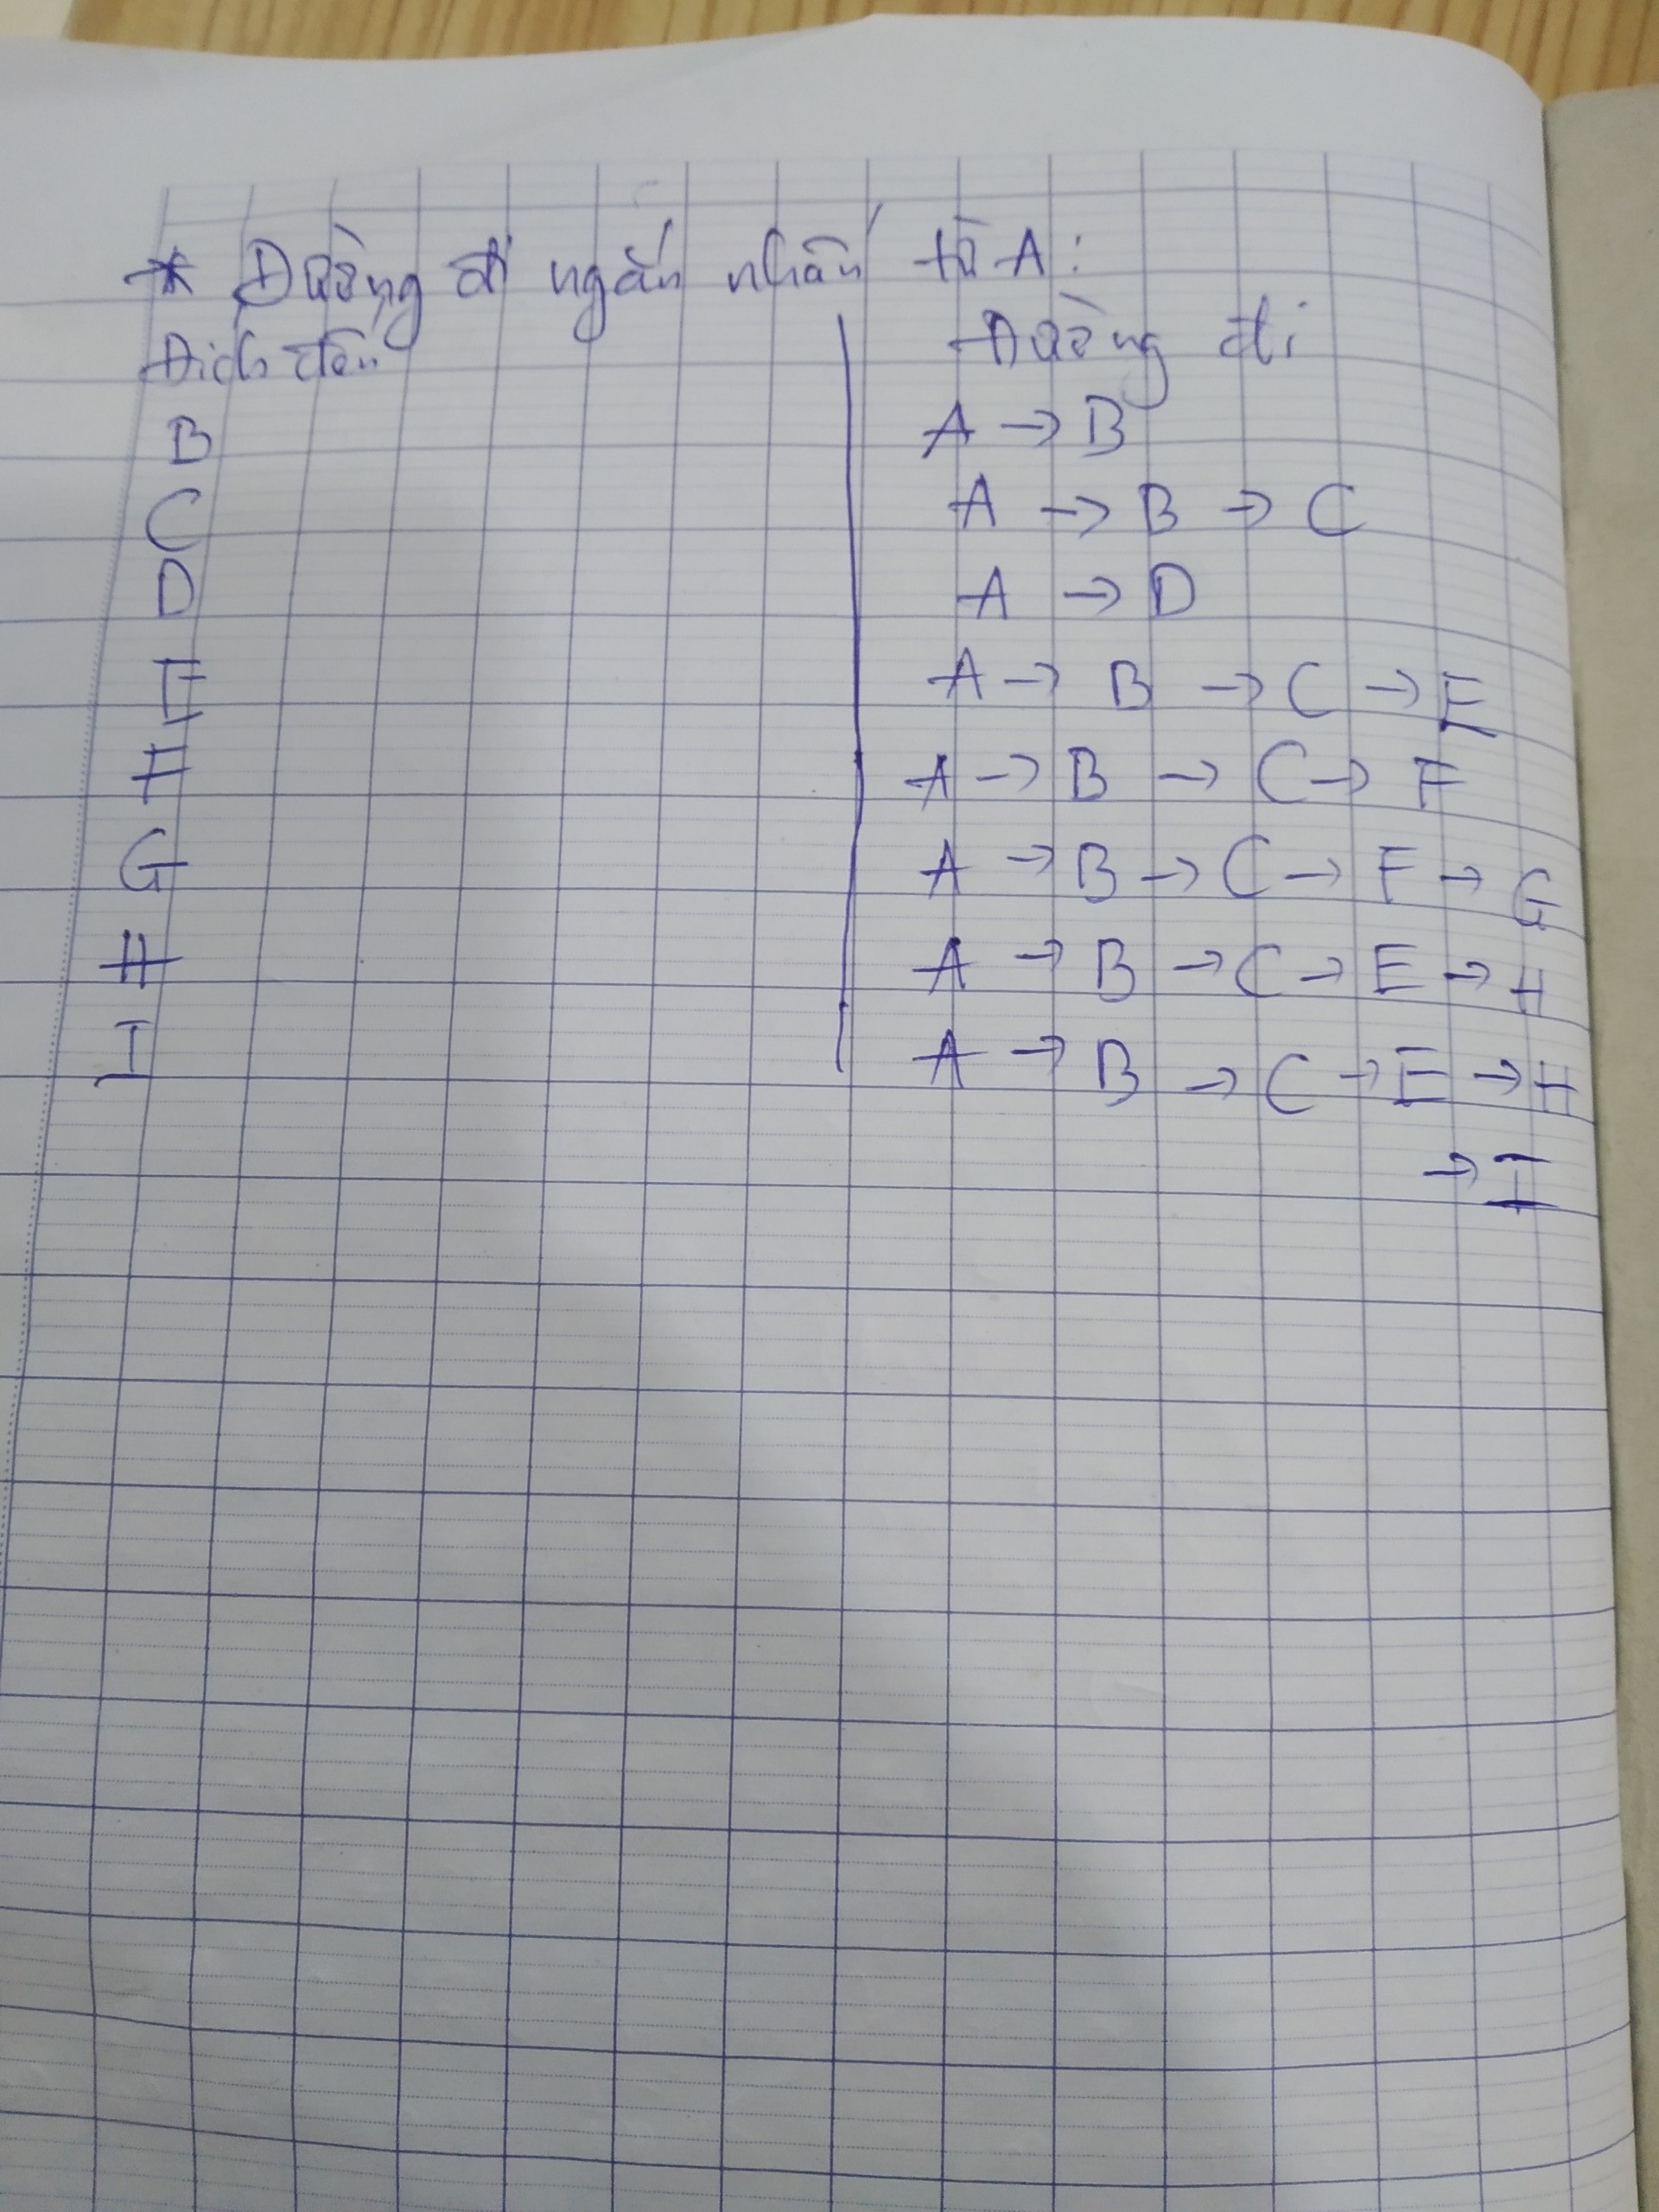 * Đường đi ngắn nhất từ A:
Đích đến | Đường đi
B | A → B
C | A → B → C
D | A → D
E | A → B → C → E
F | A → B → C → F
G | A → B → C → F → G
H | A → B → C → E → H
I | A → B → C → E → H
→ I